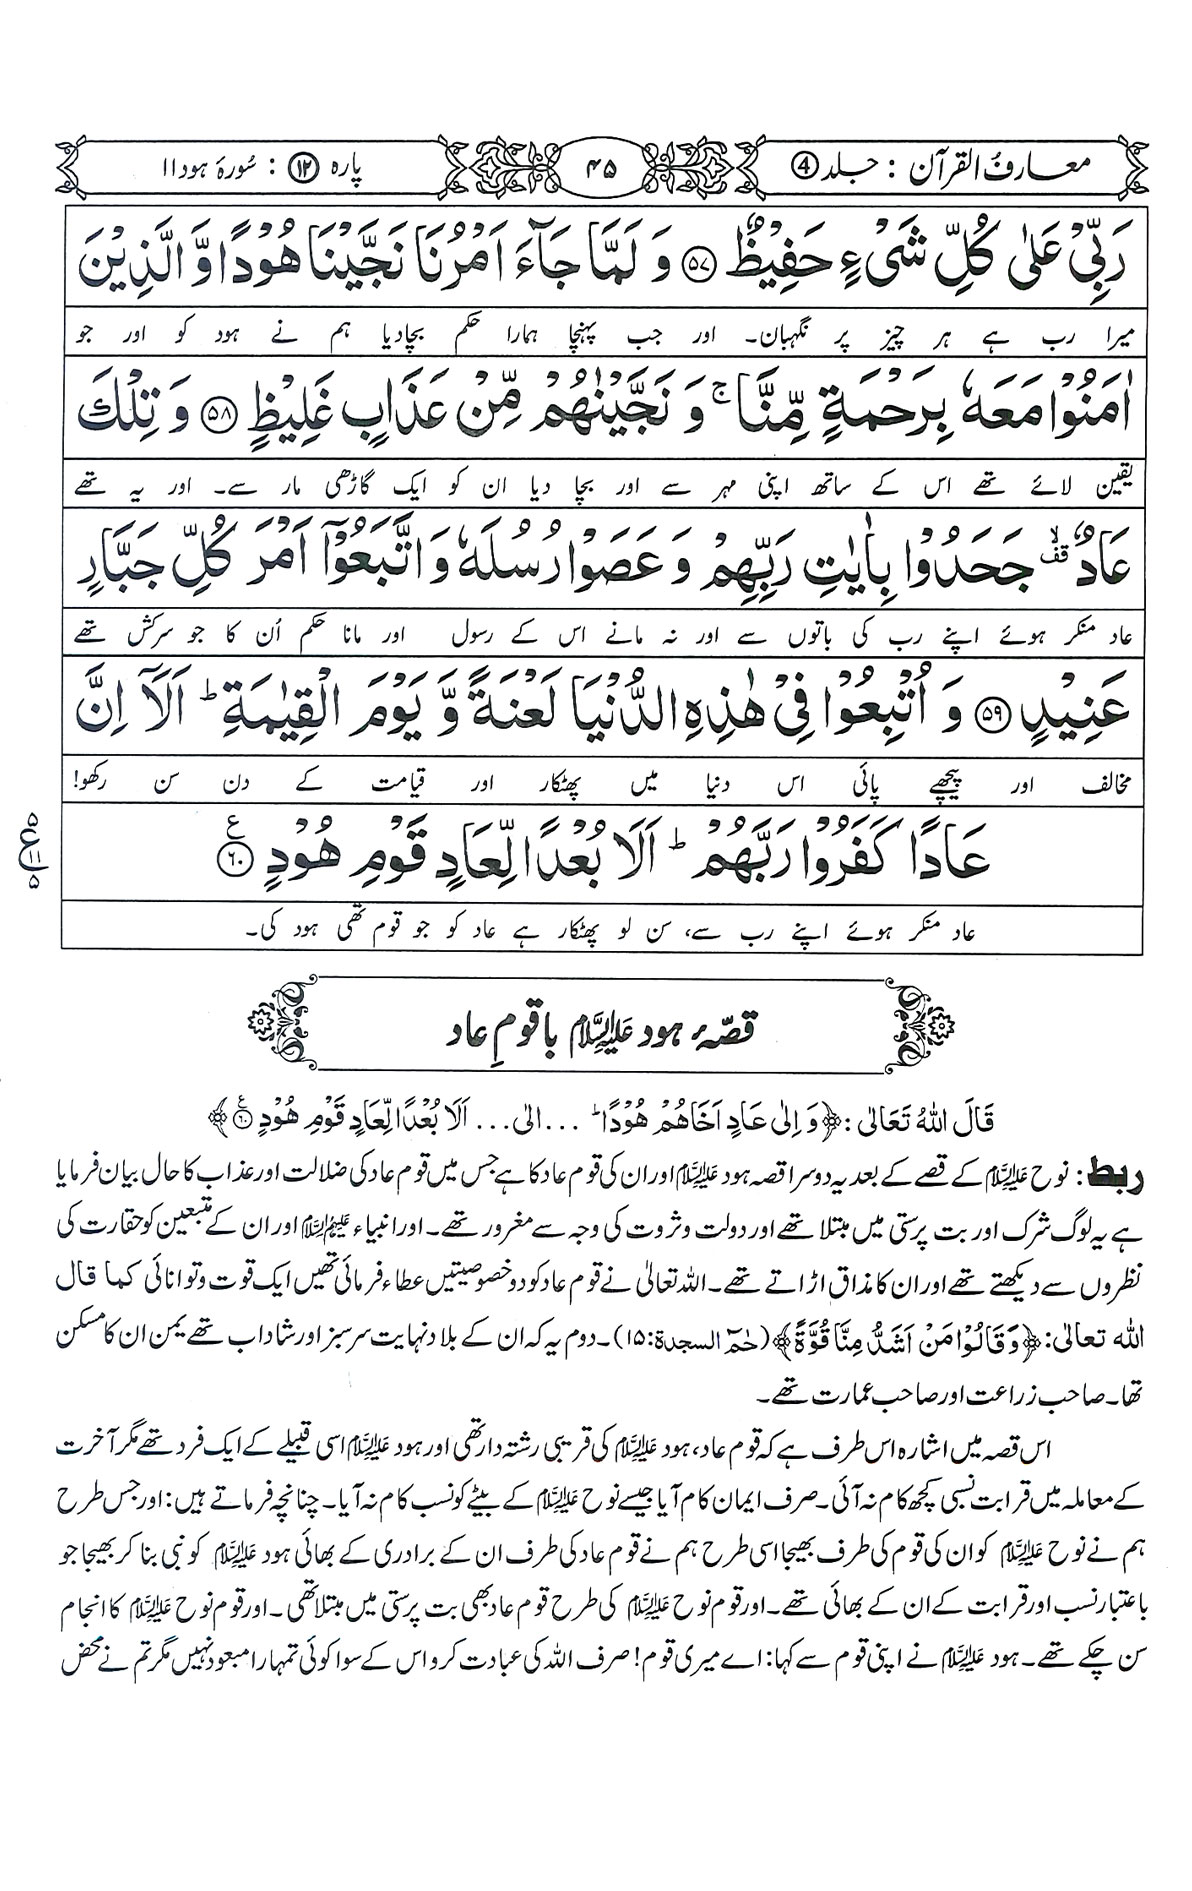 معارفُ القرآن : جلد ④
۴۵
پارہ ⑫ : سُورۂ ہود ۱۱
رَبِّیۡ عَلٰی کُلِّ شَیۡءٍ حَفِیۡظٌ ﴿۵۷﴾ وَ لَمَّا جَآءَ اَمۡرُنَا نَجَّیۡنَا ہُوۡدًا وَّ الَّذِیۡنَ
میرا رب ہے ہر چیز پر نگہبان۔ اور جب پہنچا ہمارا حکم بچادیا ہم نے ہود کو اور جو
اٰمَنُوۡا مَعَہٗ بِرَحۡمَۃٍ مِّنَّا ۚ وَ نَجَّیۡنٰہُمۡ مِّنۡ عَذَابٍ غَلِیۡظٍ ﴿۵۸﴾ وَ تِلۡکَ
یقین لائے تھے اس کے ساتھ اپنی مہر سے اور بچا دیا ان کو ایک گاڑھی مار سے۔ اور یہ تھے
عَادٌ ۟ۙ جَحَدُوۡا بِاٰیٰتِ رَبِّہِمۡ وَ عَصَوۡا رُسُلَہٗ وَ اتَّبَعُوۡۤا اَمۡرَ کُلِّ جَبَّارٍ
عاد منکر ہوئے اپنے رب کی باتوں سے اور نہ مانے اس کے رسول اور مانا حکم اُن کا جو سرکش تھے
عَنِیۡدٍ ﴿۵۹﴾ وَ اُتۡبِعُوۡا فِیۡ ہٰذِہِ الدُّنۡیَا لَعۡنَۃً وَّ یَوۡمَ الۡقِیٰمَۃِ ؕ اَلَاۤ اِنَّ
مخالف اور پیچھے پائی اس دنیا میں پھٹکار اور قیامت کے دن سن رکھو!
عَادًا کَفَرُوۡا رَبَّہُمۡ ؕ اَلَا بُعۡدًا لِّعَادٍ قَوۡمِ ہُوۡدٍ ﴿۶۰﴾ ع
۵ ع ۱۱ ۵
عاد منکر ہوئے اپنے رب سے، سن لو پھٹکار ہے عاد کو جو قوم تھی ہود کی۔
قصّۂ ہود علیہ السلام با قومِ عاد
قَالَ اللّٰہُ تَعَالٰی : ﴿وَ اِلٰی عَادٍ اَخَاہُمۡ ہُوۡدًا ؕ ... الٰی ... اَلَا بُعۡدًا لِّعَادٍ قَوۡمِ ہُوۡدٍ ۶۰﴾
ربط : نوح علیہ السلام کے قصے کے بعد یہ دوسرا قصہ ہود علیہ السلام اور ان کی قوم عاد کا ہے جس میں قوم عاد کی ضلالت اور عذاب کا حال بیان فرمایا
ہے یہ لوگ شرک اور بت پرستی میں مبتلا تھے اور دولت و ثروت کی وجہ سے مغرور تھے۔ اور انبیاء علیہم السلام اور ان کے متبعین کو حقارت کی
نظروں سے دیکھتے تھے اور ان کا مذاق اڑاتے تھے۔ اللہ تعالیٰ نے قوم عاد کو دو خصوصیتیں عطاء فرمائی تھیں ایک قوت و توانائی کما قال
اللہ تعالیٰ: ﴿وَ قَالُوۡا مَنۡ اَشَدُّ مِنَّا قُوَّۃً﴾ (حٰمٓ السجدۃ: ۱۵)۔ دوم یہ کہ ان کے بلاد نہایت سرسبز اور شاداب تھے یمن ان کا مسکن
تھا۔ صاحب زراعت اور صاحب عمارت تھے۔
اس قصہ میں اشارہ اس طرف ہے کہ قوم عاد، ہود علیہ السلام کی قریبی رشتہ دار تھی اور ہود علیہ السلام اسی قبیلے کے ایک فرد تھے مگر آخرت
کے معاملہ میں قرابت نسبی کچھ کام نہ آئی۔ صرف ایمان کام آیا جیسے نوح علیہ السلام کے بیٹے کو نسب کام نہ آیا۔ چنانچہ فرماتے ہیں: اور جس طرح
ہم نے نوح علیہ السلام کو ان کی قوم کی طرف بھیجا اسی طرح ہم نے قوم عاد کی طرف ان کے برادری کے بھائی ہود علیہ السلام کو نبی بنا کر بھیجا جو
باعتبار نسب اور قرابت کے ان کے بھائی تھے۔ اور قوم نوح علیہ السلام کی طرح قوم عاد بھی بت پرستی میں مبتلا تھی۔ اور قوم نوح علیہ السلام کا انجام
سن چکے تھے۔ ہود علیہ السلام نے اپنی قوم سے کہا: اے میری قوم! صرف اللہ کی عبادت کرو اس کے سوا کوئی تمہارا معبود نہیں مگر تم نے محض